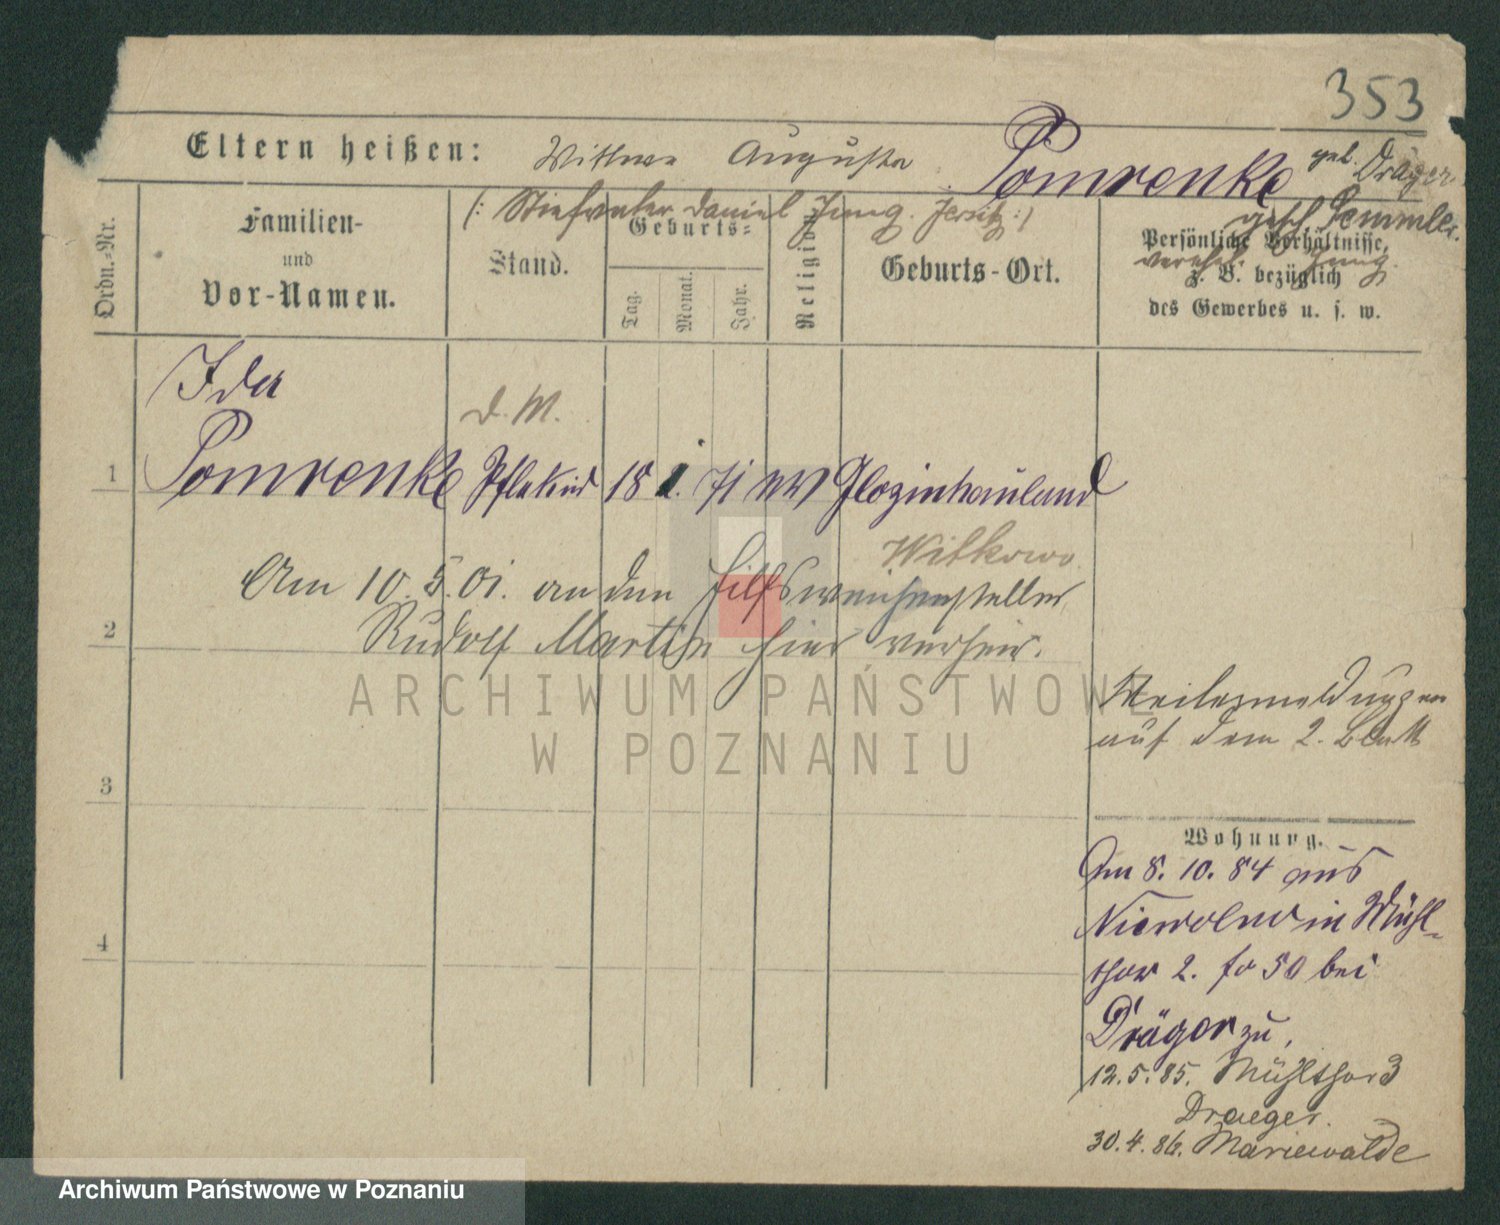 353
Eltern heißen: Wittwe Augusta Pomrenke geb. Dräger
(: Stiefvater Daniel Jung. Jersitz :) gesch. Semmler
verehel. Jung.
Ordn.-Nr.
Familien-
und
Vor-Namen.
Stand.
Geburts-
Tag.
Monat.
Jahr.
Religion
Geburts-Ort.
Persönliche Verhältnisse,
z. B. bezüglich
des Gewerbes u. s. w.
Ida
d. M.
1 Pomrenke Pflekind 18 1. 71 ev Gloginhauland
Witkowo
Am 10.5.01. an den Hilfsweichensteller
2 Rudolf Martin hier verheir.
Weitermeldungen
auf dem 2. Blatt
3
Wohnung.
Am 8. 10. 84 aus
Niewolno in Mühl-
4
thor 2. fo 50 bei
Dräger zu,
12.5.85. Mühlthor 3
Draeger.
30.4.86. Mariewalde
ARCHIWUM PAŃSTWOWE
W POZNANIU
Archiwum Państwowe w Poznaniu